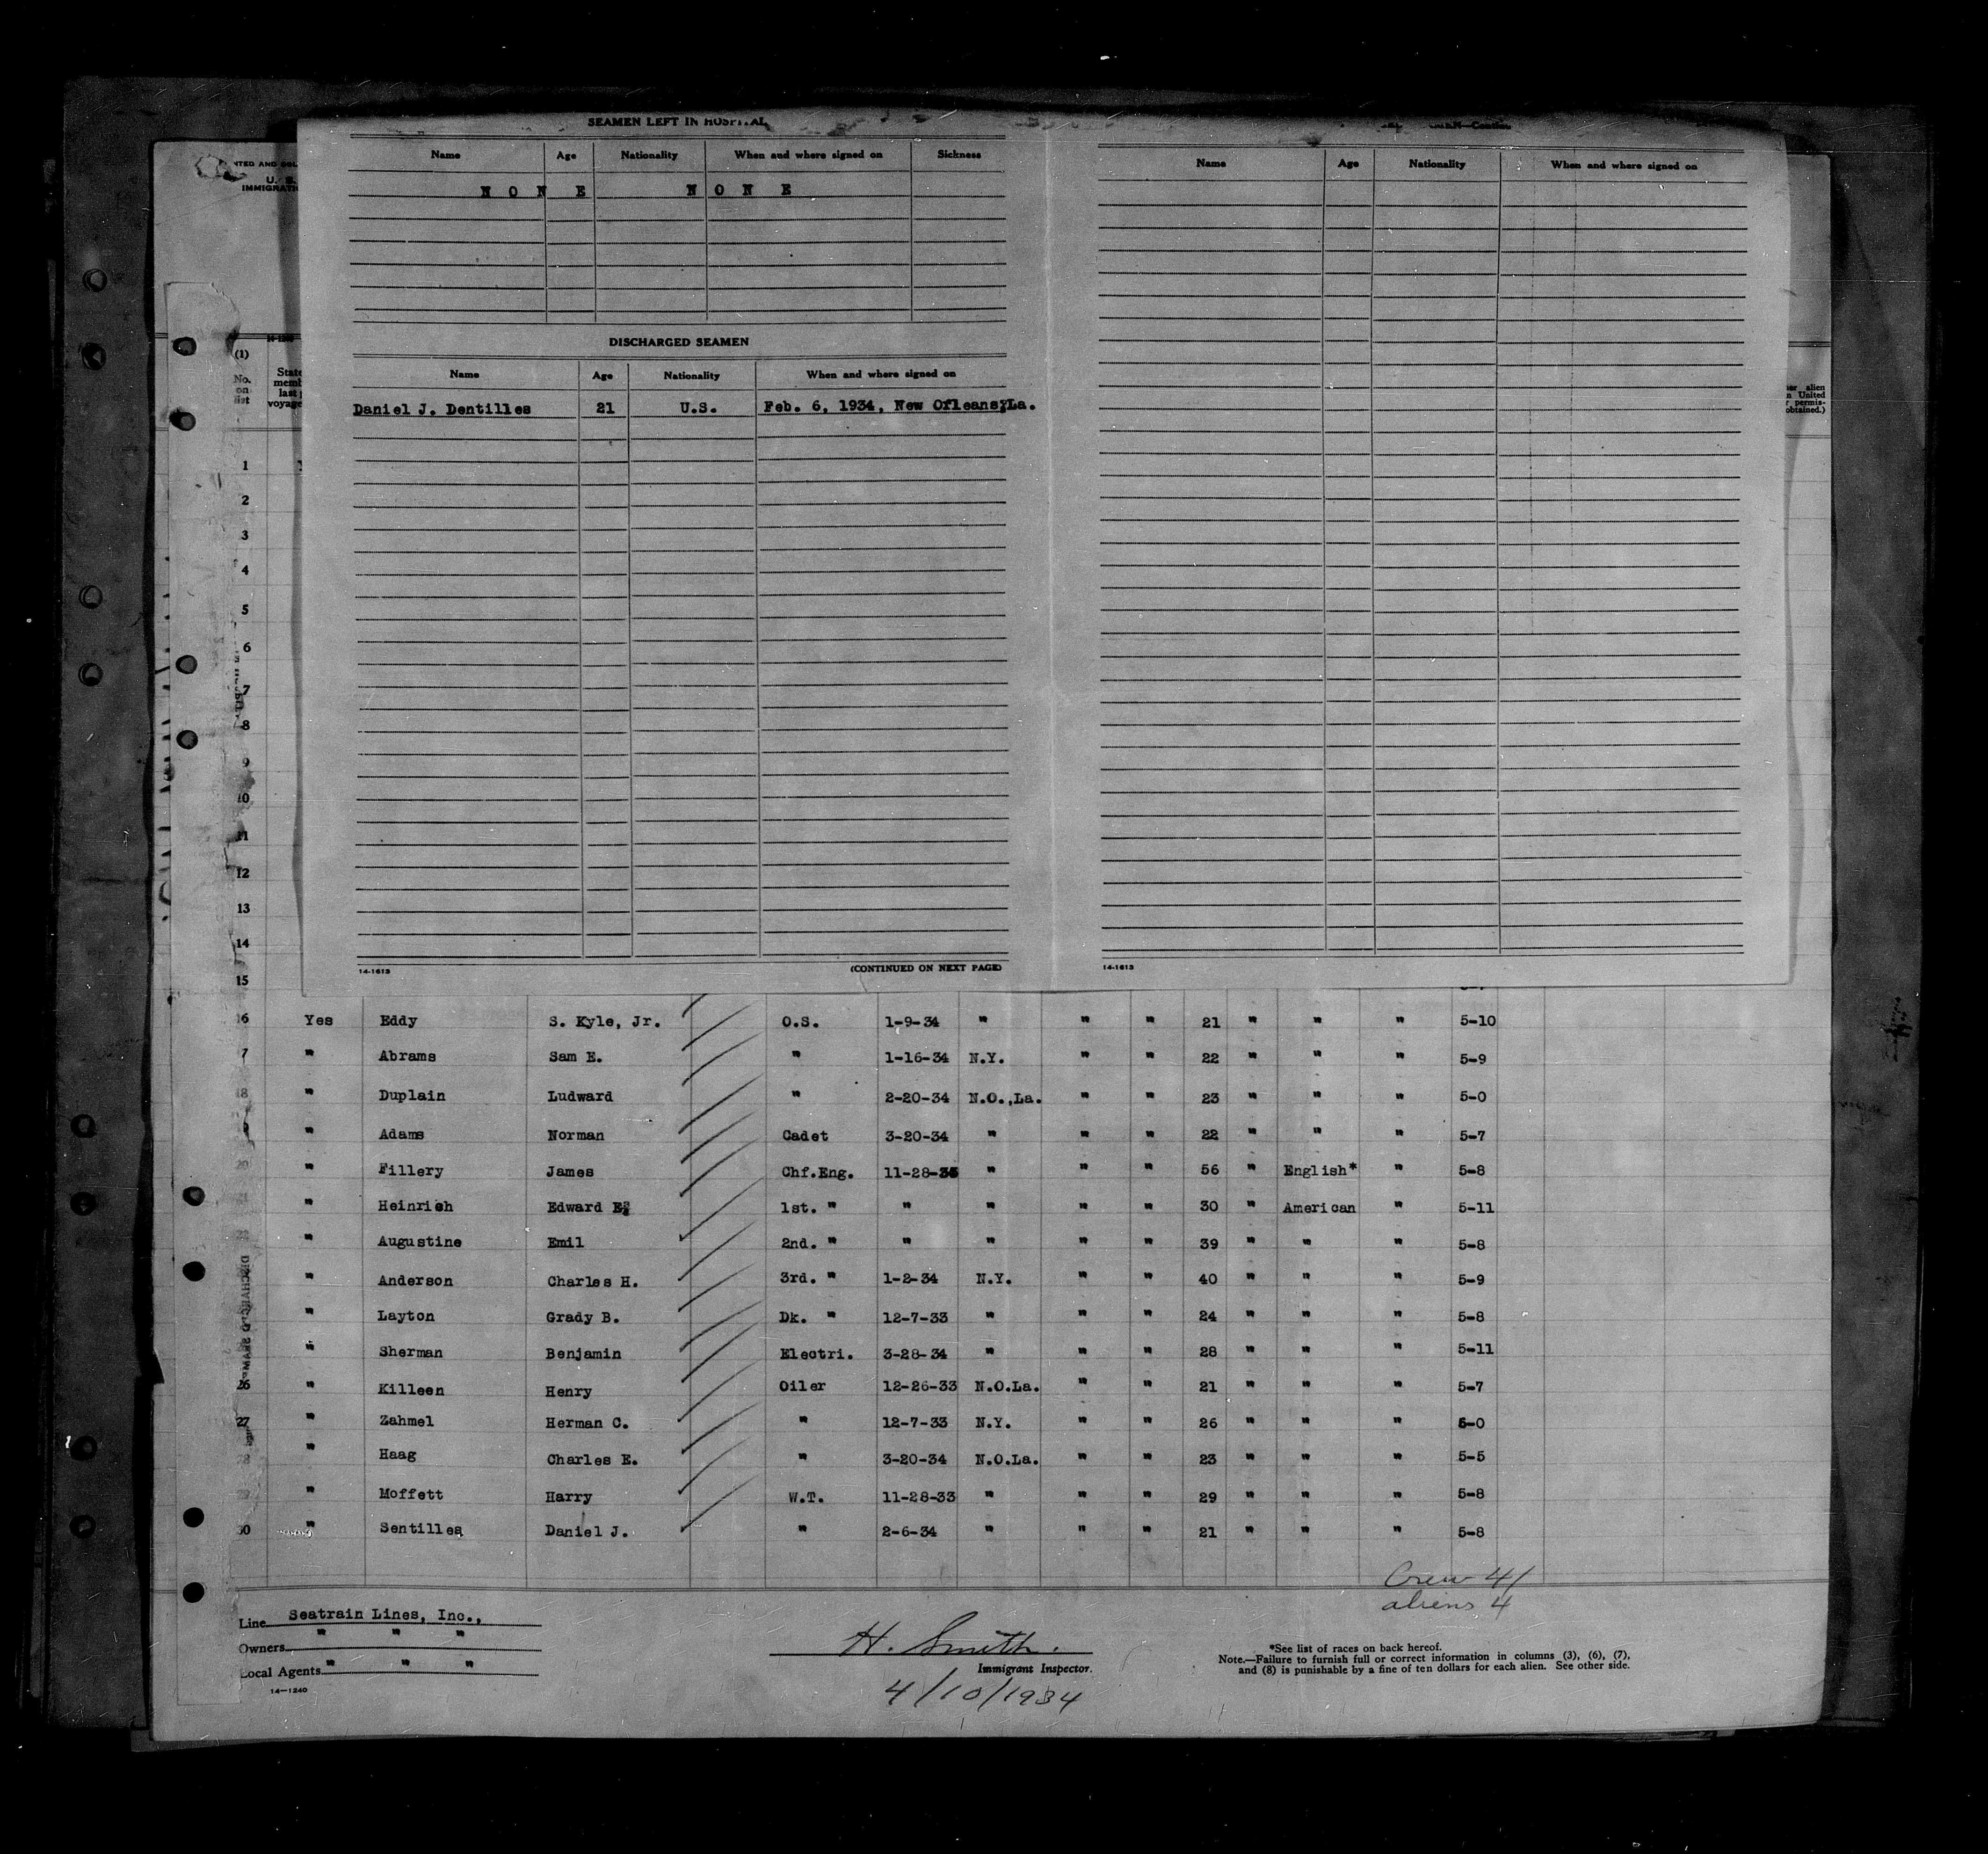 SEAMEN LEFT IN HOSPITAL
Name Age Nationality When and where signed on Sickness
N O N E N O N E
DISCHARGED SEAMEN
Name Age Nationality When and where signed on
Daniel J. Dentilles 21 U.S. Feb. 6, 1934, New Orleans,La.
14-1613 (CONTINUED ON NEXT PAGE)
Name Age Nationality When and where signed on
14-1613
U. S.
(1)
No. on list
1
2
3
4
5
6
7
8
9
10
11
12
13
14
15
16 Yes Eddy S. Kyle, Jr. O.S. 1-9-34 " " " 21 " " " 5-10
17 " Abrams Sam E. " 1-16-34 N.Y. " " 22 " " " 5-9
18 " Duplain Ludward " 2-20-34 N.O.,La. " " 23 " " " 5-0
" Adams Norman Cadet 3-20-34 " " " 22 " " " 5-7
20 " Fillery James Chf.Eng. 11-28-33 " " " 56 " English* " 5-8
21 " Heinrich Edward E. 1st. " " " " " 30 " American " 5-11
" Augustine Emil 2nd. " " " " " 39 " " " 5-8
" Anderson Charles H. 3rd. " 1-2-34 N.Y. " " 40 " " " 5-9
" Layton Grady B. Dk. " 12-7-33 " " " 24 " " " 5-8
" Sherman Benjamin Electri. 3-28-34 " " " 28 " " " 5-11
26 " Killeen Henry Oiler 12-26-33 N.O.La. " " 21 " " " 5-7
27 " Zahmel Herman C. " 12-7-33 N.Y. " " 26 " " " 6-0
28 " Haag Charles E. " 3-20-34 N.O.La. " " 23 " " " 5-5
29 " Moffett Harry W.T. 11-28-33 " " " 29 " " " 5-8
30 " Sentilles Daniel J. " 2-6-34 " " " 21 " " " 5-8
Crew 41
aliens 4
Line Seatrain Lines, Inc.,
Owners " " "
Local Agents " " "
14-1240
H. Smith.
Immigrant Inspector.
4/10/1934
*See list of races on back hereof.
Note.—Failure to furnish full or correct information in columns (3), (6), (7),
and (8) is punishable by a fine of ten dollars for each alien. See other side.